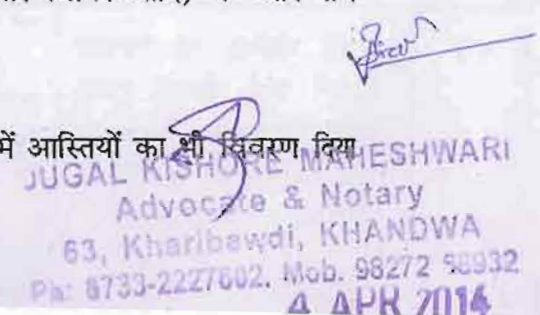 में आस्तियों का भी विवरण दिया
JUGAL KISHORE MAHESHWARI
Advocate & Notary
63, Kharibawdi, KHANDWA
Ph: 8733-2227602, Mob. 98272
4 APR 2014